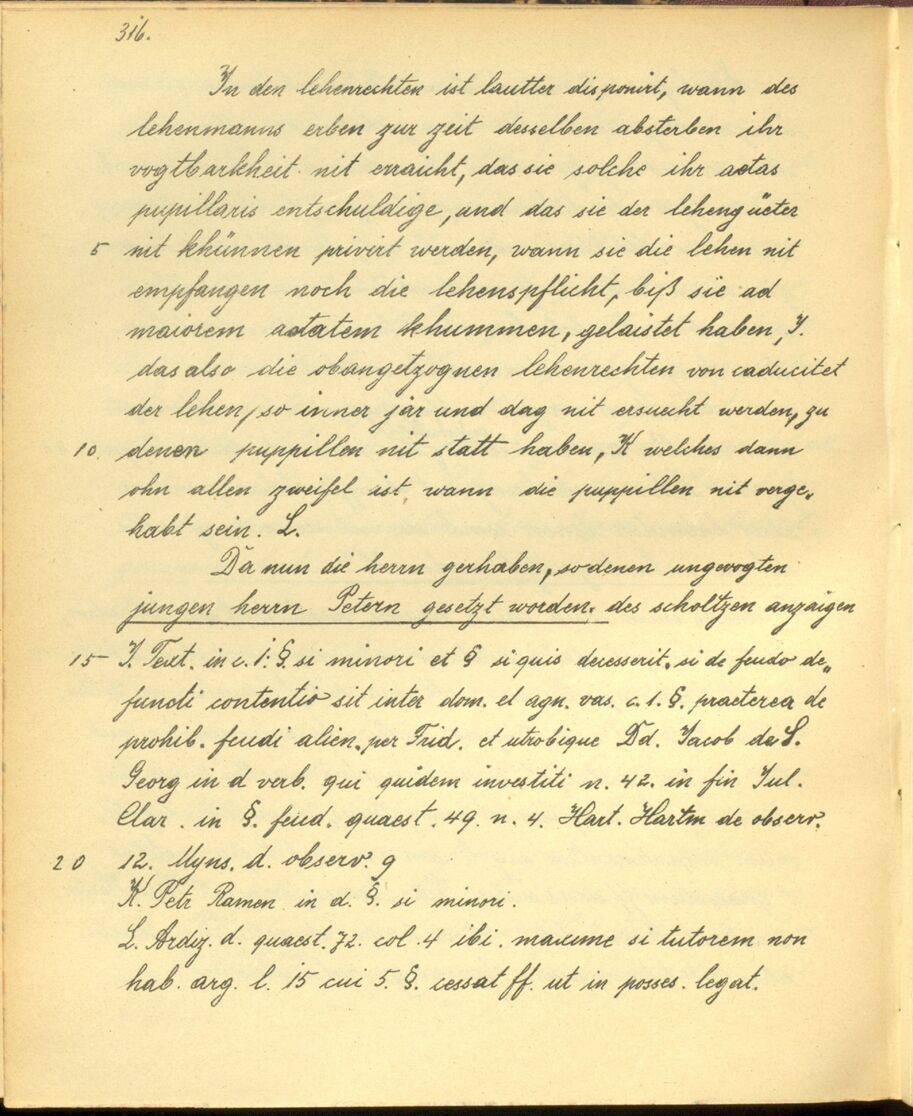 316.
In den lehenrechten ist lautter disponirt, wann des
lehenmanns erben zur zeit desselben absterben ihr
vogtbarkheit nit erraicht, das sie solche ihr aetas
pupillaris entschuldige, und das sie der lehengüeter
5 nit khünnen privirt werden, wann sie die lehen nit
empfangen noch die lehenspflicht, biß sie ad
maiorem aetatem khummen, gelaistet haben, I.
das also die obangetzognen lehenrechten von caducitet
der lehen, so inner jar und dag nit ersuecht werden, zu
10. denen puppillen nit statt haben, K welches dann
ohn allen zweifel ist, wann die puppillen nit verge„
habt sein. L.
Da nun die herrn gerhaben, so denen ungevogten
jungen herrn Petern gesetzt worden. des scholtzen anzaigen
15 I. Text. in c. 1: §. si minori et § si quis decesserit. si de feudo de„
functi contentio sit inter dom. el agn. vas. c. 1. §. praeterea de
prohib. feudi alien. per Frid. et utrobique Dd. Jacob de S.
Georg in d verb. qui quidem investiti n. 42. in fin Jul.
Clar. in §. feud. quaest. 49. n. 4. Hart. Hartm de observ.
20 12. Myns. d. observ. 9
K. Petr Ramen in d. §. si minori.
L. Ardiz. d. quaest. 72. col. 4 ibi. maxume si tutorem non
hab. arg. l. 15 cui 5. §. cessat ff. ut in posses. legat.